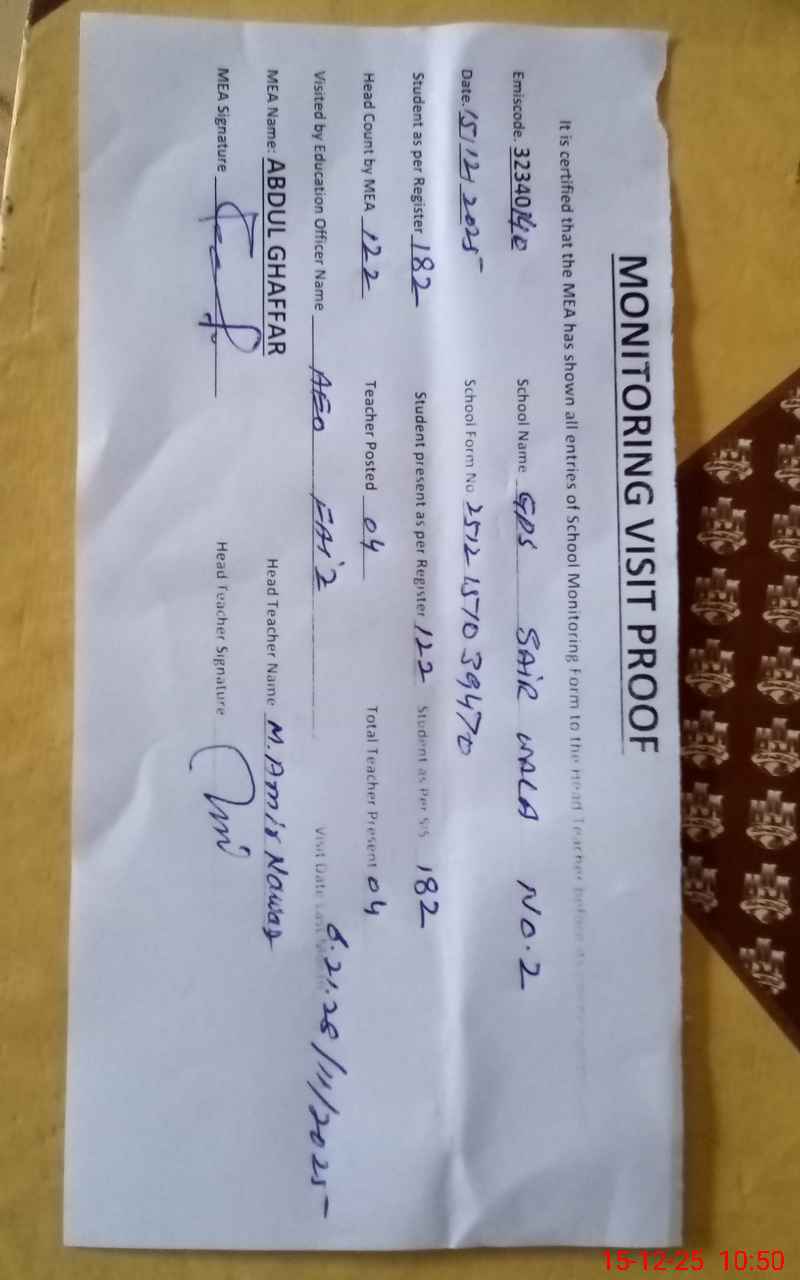 MONITORING VISIT PROOF
It is certified that the MEA has shown all entries of School Monitoring Form to the Head Teacher before
Emiscode. 32340140 School Name GPS SAIR WALA NO.2
Date. 15/12/2025 School Form No 2512157039470
Student as per Register 182 Student present as per Register 122 Student as Per SIS 182
Head Count by MEA 122 Teacher Posted 04 Total Teacher Present 04
Visited by Education Officer Name AEO Visit Date Last 6.21.28/11/2025
MEA Name: ABDUL GHAFFAR Head Teacher Name M. Amir Nawaz
MEA Signature Head Teacher Signature
15-12-25 10:50